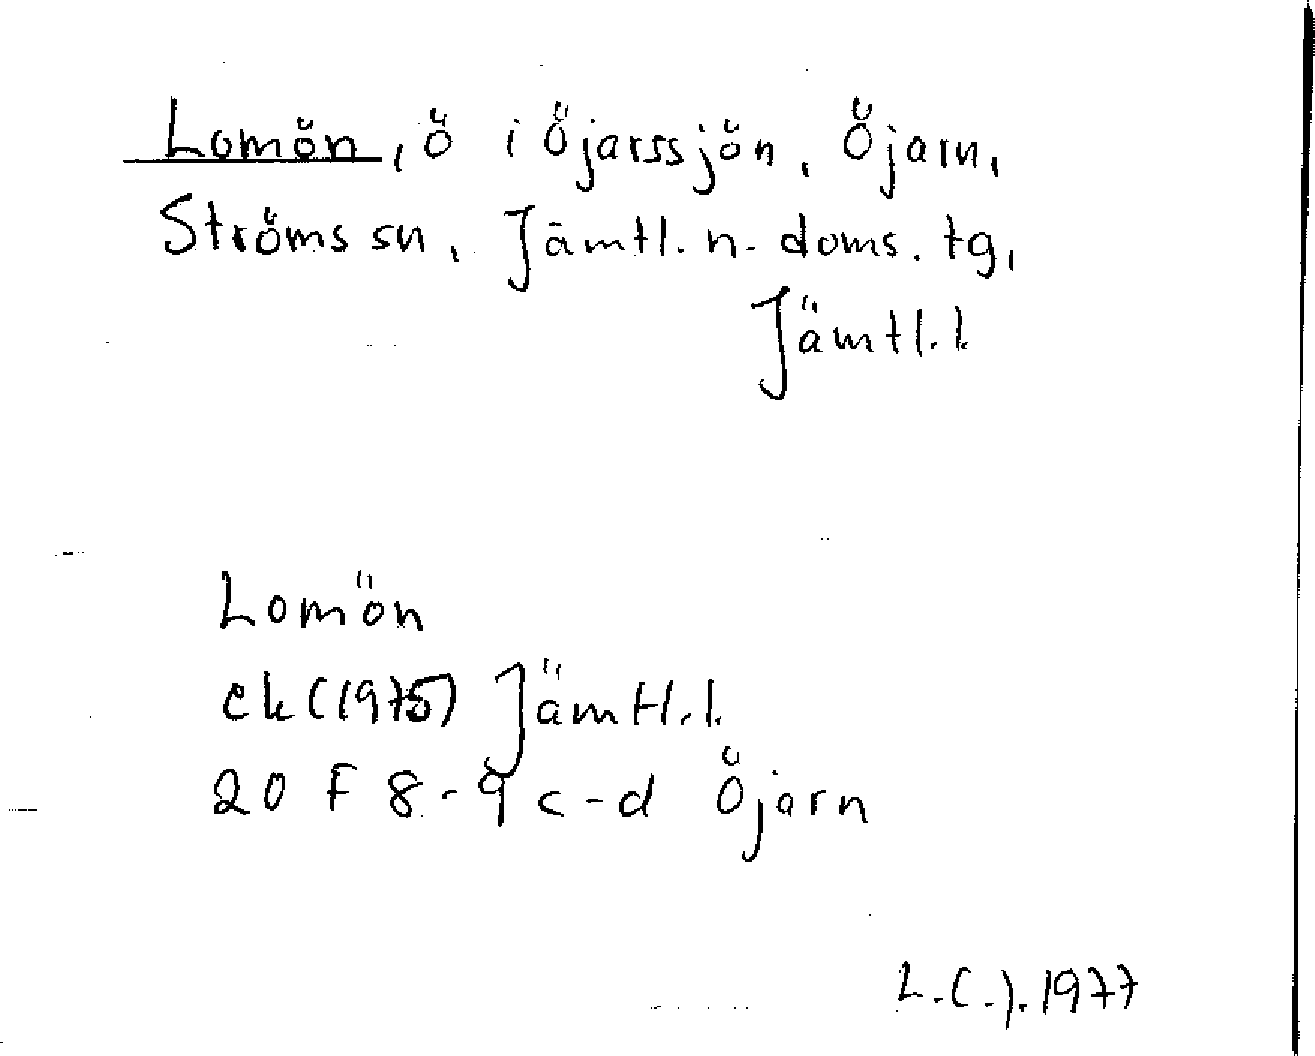 Lomön, ö i Öjarssjön, Öjarn,
Ströms sn, Jämtl. n. doms. tg,
Jämtl. l.
Lomön
ek (1975) Jämtl. l.
20 F 8-9 c-d Öjarn
L.C.J. 1977